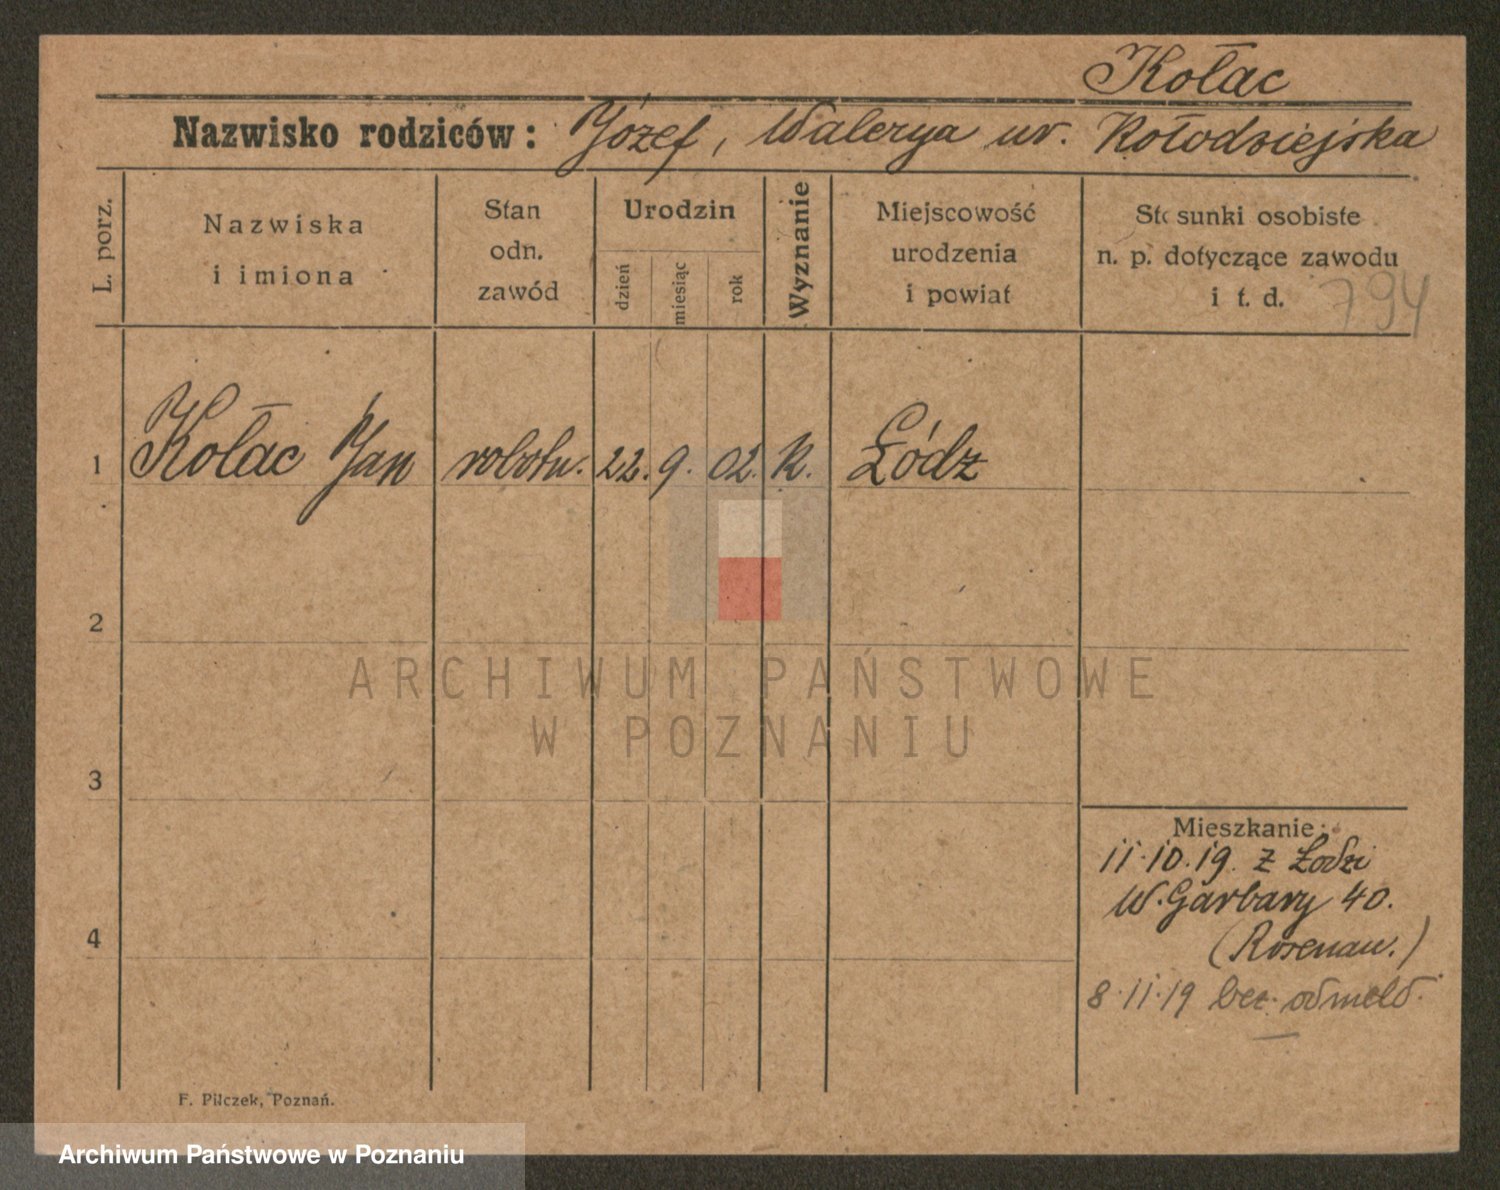 Kołac
Nazwisko rodziców: Józef, Walerya ur. Kołodziejska
L. porz.
Nazwiska
i imiona
Stan
odn.
zawód
Urodzin
dzień
miesiąc
rok
Wyznanie
Miejscowość
urodzenia
i powiat
Stosunki osobiste
n. p. dotyczące zawodu
i t. d.
794
1 Kołac Jan robotn. 22. 9. 02. K. Łódz
2
ARCHIWUM PAŃSTWOWE
W POZNANIU
3
Mieszkanie:
11.10.19. z Łodzi
W. Garbary 40.
4
(Rosenau.)
8.11.19 bez odmeld.
F. Pilczek, Poznań.
Archiwum Państwowe w Poznaniu